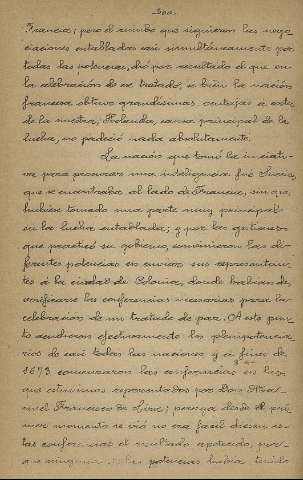 300.
Francia; pero el rumbo que siguieron las nego
ciaciones entabladas casi simultáneamente por
todas las potencias, dió por resultado el que en
la celebración de ese tratado, si bien la nación
francesa obtuvo grandísimas ventajas á costa
de la nuestra, Holanda, causa principal de la
lucha, no padeció nada absolutamente.
La nacion que tomó la iniciati-
va para procurar una inteligencia fué Suecia,
que se encontraba al lado de Francia, sin que
hubiera tomado una parte muy principal
en la lucha entablada; y por las gestiones
que practicó su gobierno, convinieron las di-
ferentes potencias en enviar sus representan-
tes á la ciudad de Colonia, donde habian de
verificarse las conferencias necesarias para la
celebracion de un tratado de paz. A este pun-
to acudieron efectivamente los plenipotencia-
rios de casi todas las naciones y á fines de
1673 comenzaron las conferencias en las
que estuvimos representados por Don Ma-
nuel Francisco de Lira; pero ya desde el pri-
mer momento se vió no era facil diesen es-
tas conferencias el resultado apetecido, por-
que ninguna potencias habia tenido